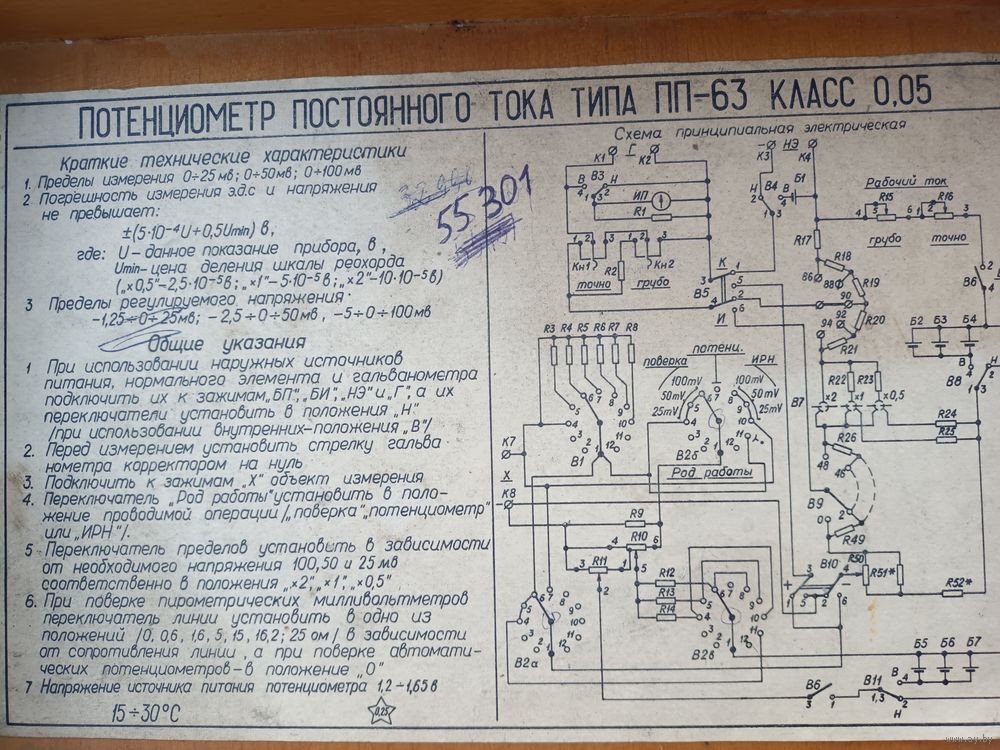 ПОТЕНЦИОМЕТР ПОСТОЯННОГО ТОКА ТИПА ПП-63 КЛАСС 0,05
Краткие технические характеристики
1. Пределы измерения 0÷25мв; 0÷50мв; 0÷100мв
2. Погрешность измерения э.д.с и напряжения
не превышает:
±(5·10⁻⁴U+0,5Umin) в,
где: U-данное показание прибора, в,
Umin-цена деления шкалы реохорда
(„×0,5"-2,5·10⁻⁵в; „×1"-5·10⁻⁵в; „×2"-10·10⁻⁵в)
3 Пределы регулируемого напряжения:
-1,25÷0÷25мв; -2,5÷0÷50мв, -5÷0÷100мв
Общие указания
1 При использовании наружных источников
питания, нормального элемента и гальванометра
подключить их к зажимам„БП",„БИ",„НЭ"и„Г", а их
переключатели установить в положения „Н"
/при использовании внутренних-положения „В"/
2. Перед измерением установить стрелку гальва
нометра корректором на нуль
3. Подключить к зажимам „Х" объект измерения
4. Переключатель „Род работы"установить в поло-
жение проводимой операции/„поверка"„потенциометр"
или „ИРН"/.
5 Переключатель пределов установить в зависимости
от необходимого напряжения 100,50 и 25 мв
соответственно в положения „×2",„×1",„×0,5"
6. При поверке пирометрических милливольтметров
переключатель линии установить в одно из
положений /0, 0,6, 1,6, 5, 15, 16,2; 25 ом/ в зависимости
от сопротивления линии, а при поверке автомати-
ческих потенциометров-в положение „0"
7 Напряжение источника питания потенциометра 1,2-1,65в
15÷30°С
0,25
55 301
Схема принципиальная электрическая
К1 Г К2
- НЭ
К3 К4
В В3 Н
ИП
R1
Н В4 В Б1
Рабочий ток
R15 R16
грубо точно
R17
R18
R19
R20
R21
86
88
90
92
94
Кн1 R2 Кн2
точно грубо
К
В5
И
В6
Б2 Б3 Б4
В Н
В8
R3 R4 R5 R6 R7 R8
потенц.
поверка ИРН
100mV 100mV
50mV 50mV
25mV 25mV
R22 R23
×2 ×1 ×0,5
В7
R24
R25
R26
48 46
К7
Х
К8
В1
В2б
Род работы
В9
R49
R9
R10
R11
R12
R13
R14
В10
R50
R51*
R52*
В2а
В2в
Б5 Б6 Б7
В6
В11
В
Н